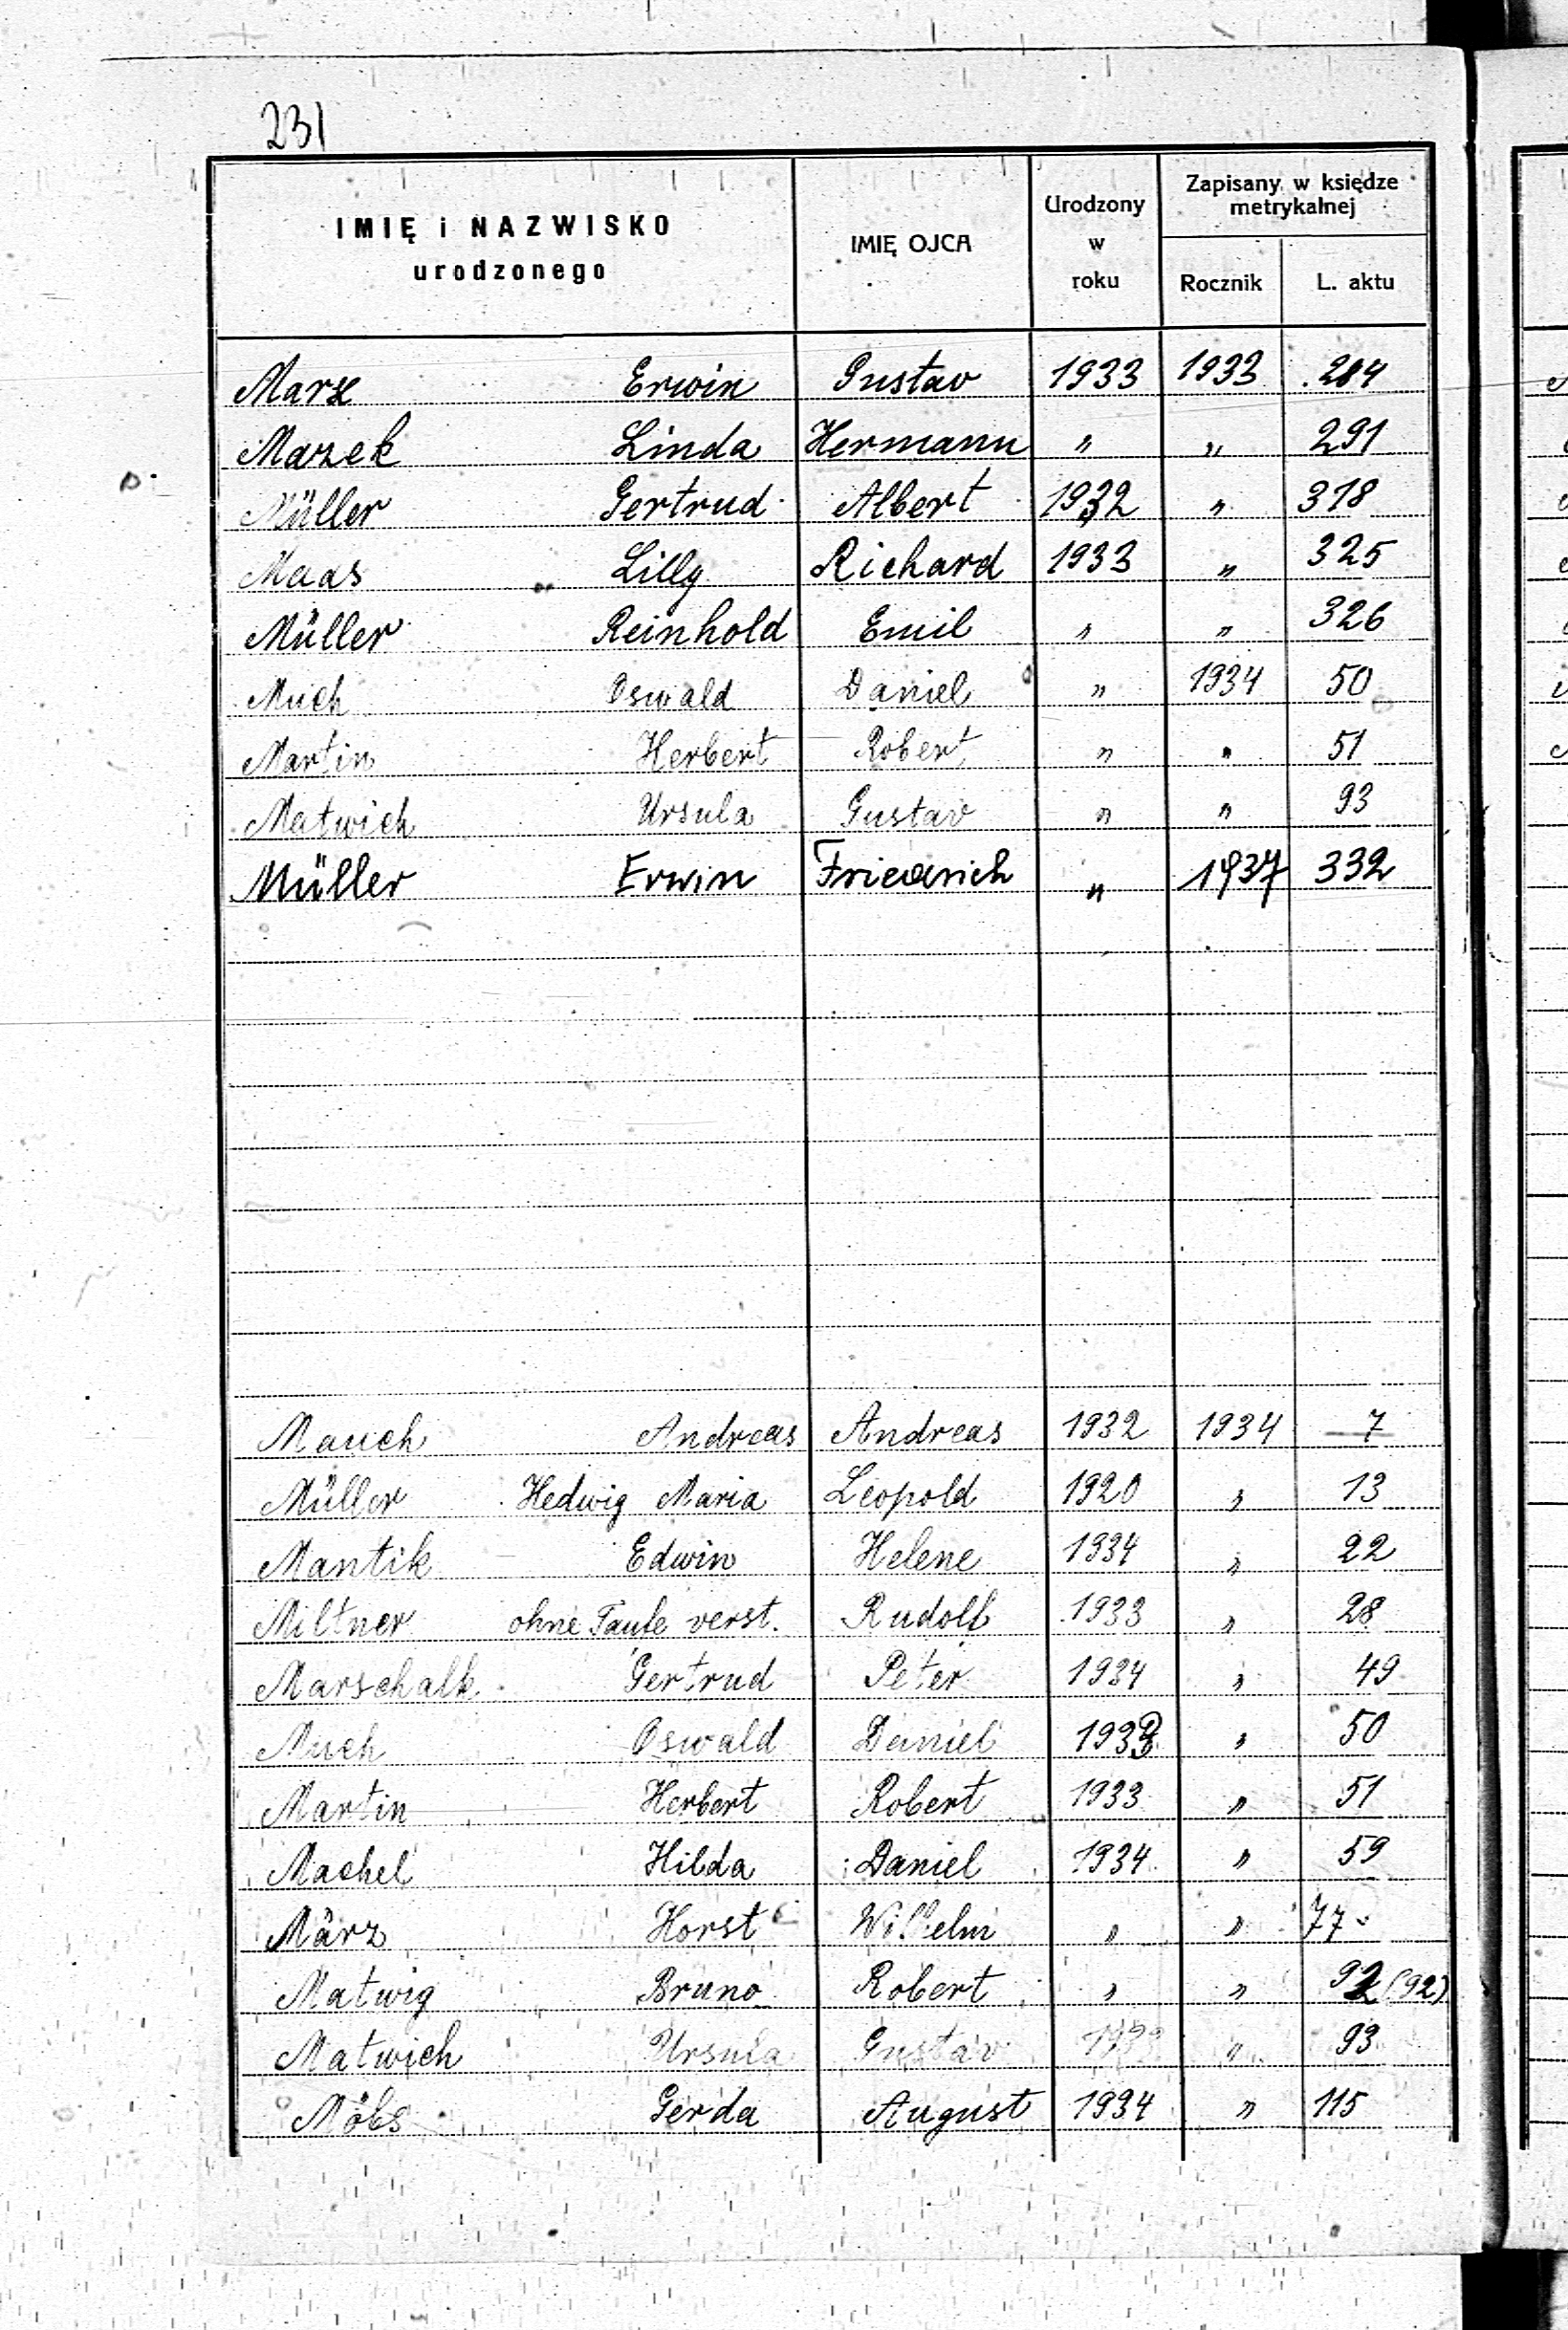 231
IMIĘ i NAZWISKO urodzonego IMIĘ OJCA Urodzony w roku Zapisany w księdze metrykalnej Rocznik L. aktu
Marx Erwin Gustav 1933 1933 284
Mazek Linda Hermann " " 291
Müller Gertrud Albert 1932 " 318
Maas Lilly Richard 1933 " 325
Müller Reinhold Emil " " 326
Much Oswald Daniel " 1934 50
Martin Herbert Robert " " 51
Matwich Ursula Gustav " " 93
Müller Erwin Friedrich " 1937 332
Mauch Andreas Andreas 1932 1934 7
Müller Hedwig Maria Leopold 1920 " 13
Mantik Edwin Helene 1934 " 22
Miltner ohne Taufe verst. Rudolf 1933 " 28
Marschalk Gertrud Peter 1934 " 49
Much Oswald Daniel 1933 " 50
Martin Herbert Robert 1933 " 51
Machel Hilda Daniel 1934 " 59
März Horst Wilhelm " " 77
Matwig Bruno Robert " " 92 (92)
Matwich Ursula Gustav 1933 " 93
Möbs Gerda August 1934 " 115